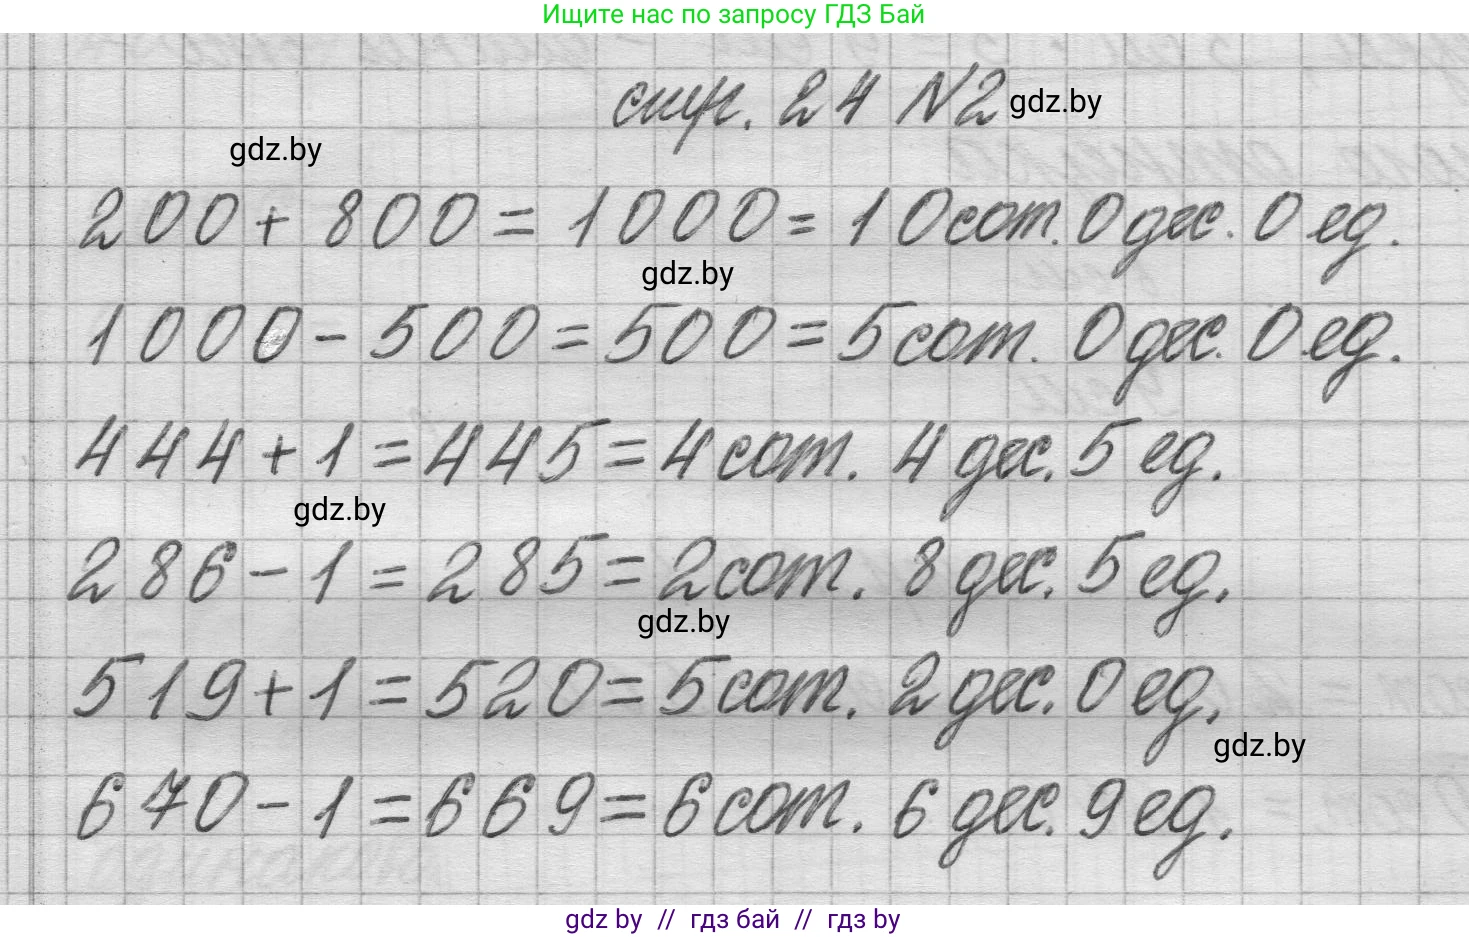 Ищите нас по запросу ГДЗ Бай
стр. 24 №2 gdz.by
gdz.by
200 + 800 = 1000 = 10 сот. 0 дес. 0 ед.
gdz.by
1000 - 500 = 500 = 5 сот. 0 дес. 0 ед.
444 + 1 = 445 = 4 сот. 4 дес. 5 ед.
gdz.by
286 - 1 = 285 = 2 сот. 8 дес. 5 ед.
gdz.by
519 + 1 = 520 = 5 сот. 2 дес. 0 ед.
gdz.by
670 - 1 = 669 = 6 сот. 6 дес. 9 ед.
gdz by // гдз бай // гдз by